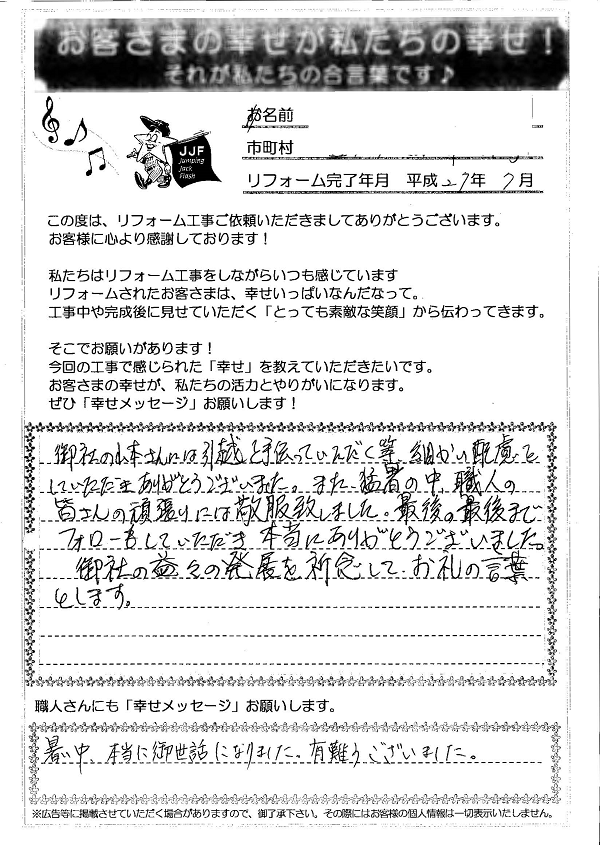 お客さまの幸せが私たちの幸せ！
それが私たちの合言葉です♪
お名前
市町村
JJF
Jumping
Jack
Flash
リフォーム完了年月　平成27年7月
この度は、リフォーム工事ご依頼いただきましてありがとうございます。
お客様に心より感謝しております！
私たちはリフォーム工事をしながらいつも感じています
リフォームされたお客さまは、幸せいっぱいなんだなって。
工事中や完成後に見せていただく「とっても素敵な笑顔」から伝わってきます。
そこでお願いがあります！
今回の工事で感じられた「幸せ」を教えていただきたいです。
お客さまの幸せが、私たちの活力とやりがいになります。
ぜひ「幸せメッセージ」お願いします！
御社の山本さんには引越を手伝っていただく等、細かい配慮を
していただきありがとうございました。また、猛暑の中、職人の
皆さんの頑張りには敬服致しました。最後の最後まで
フォローをしていただき本当にありがとうございました。
御社の益々の発展を祈念して、お礼の言葉
とします。
職人さんにも「幸せメッセージ」お願いします。
暑い中、本当に御世話になりました。有難うございました。
※広告等に掲載させていただく場合がありますので、御了承下さい。その際にはお客様の個人情報は一切表示いたしません。